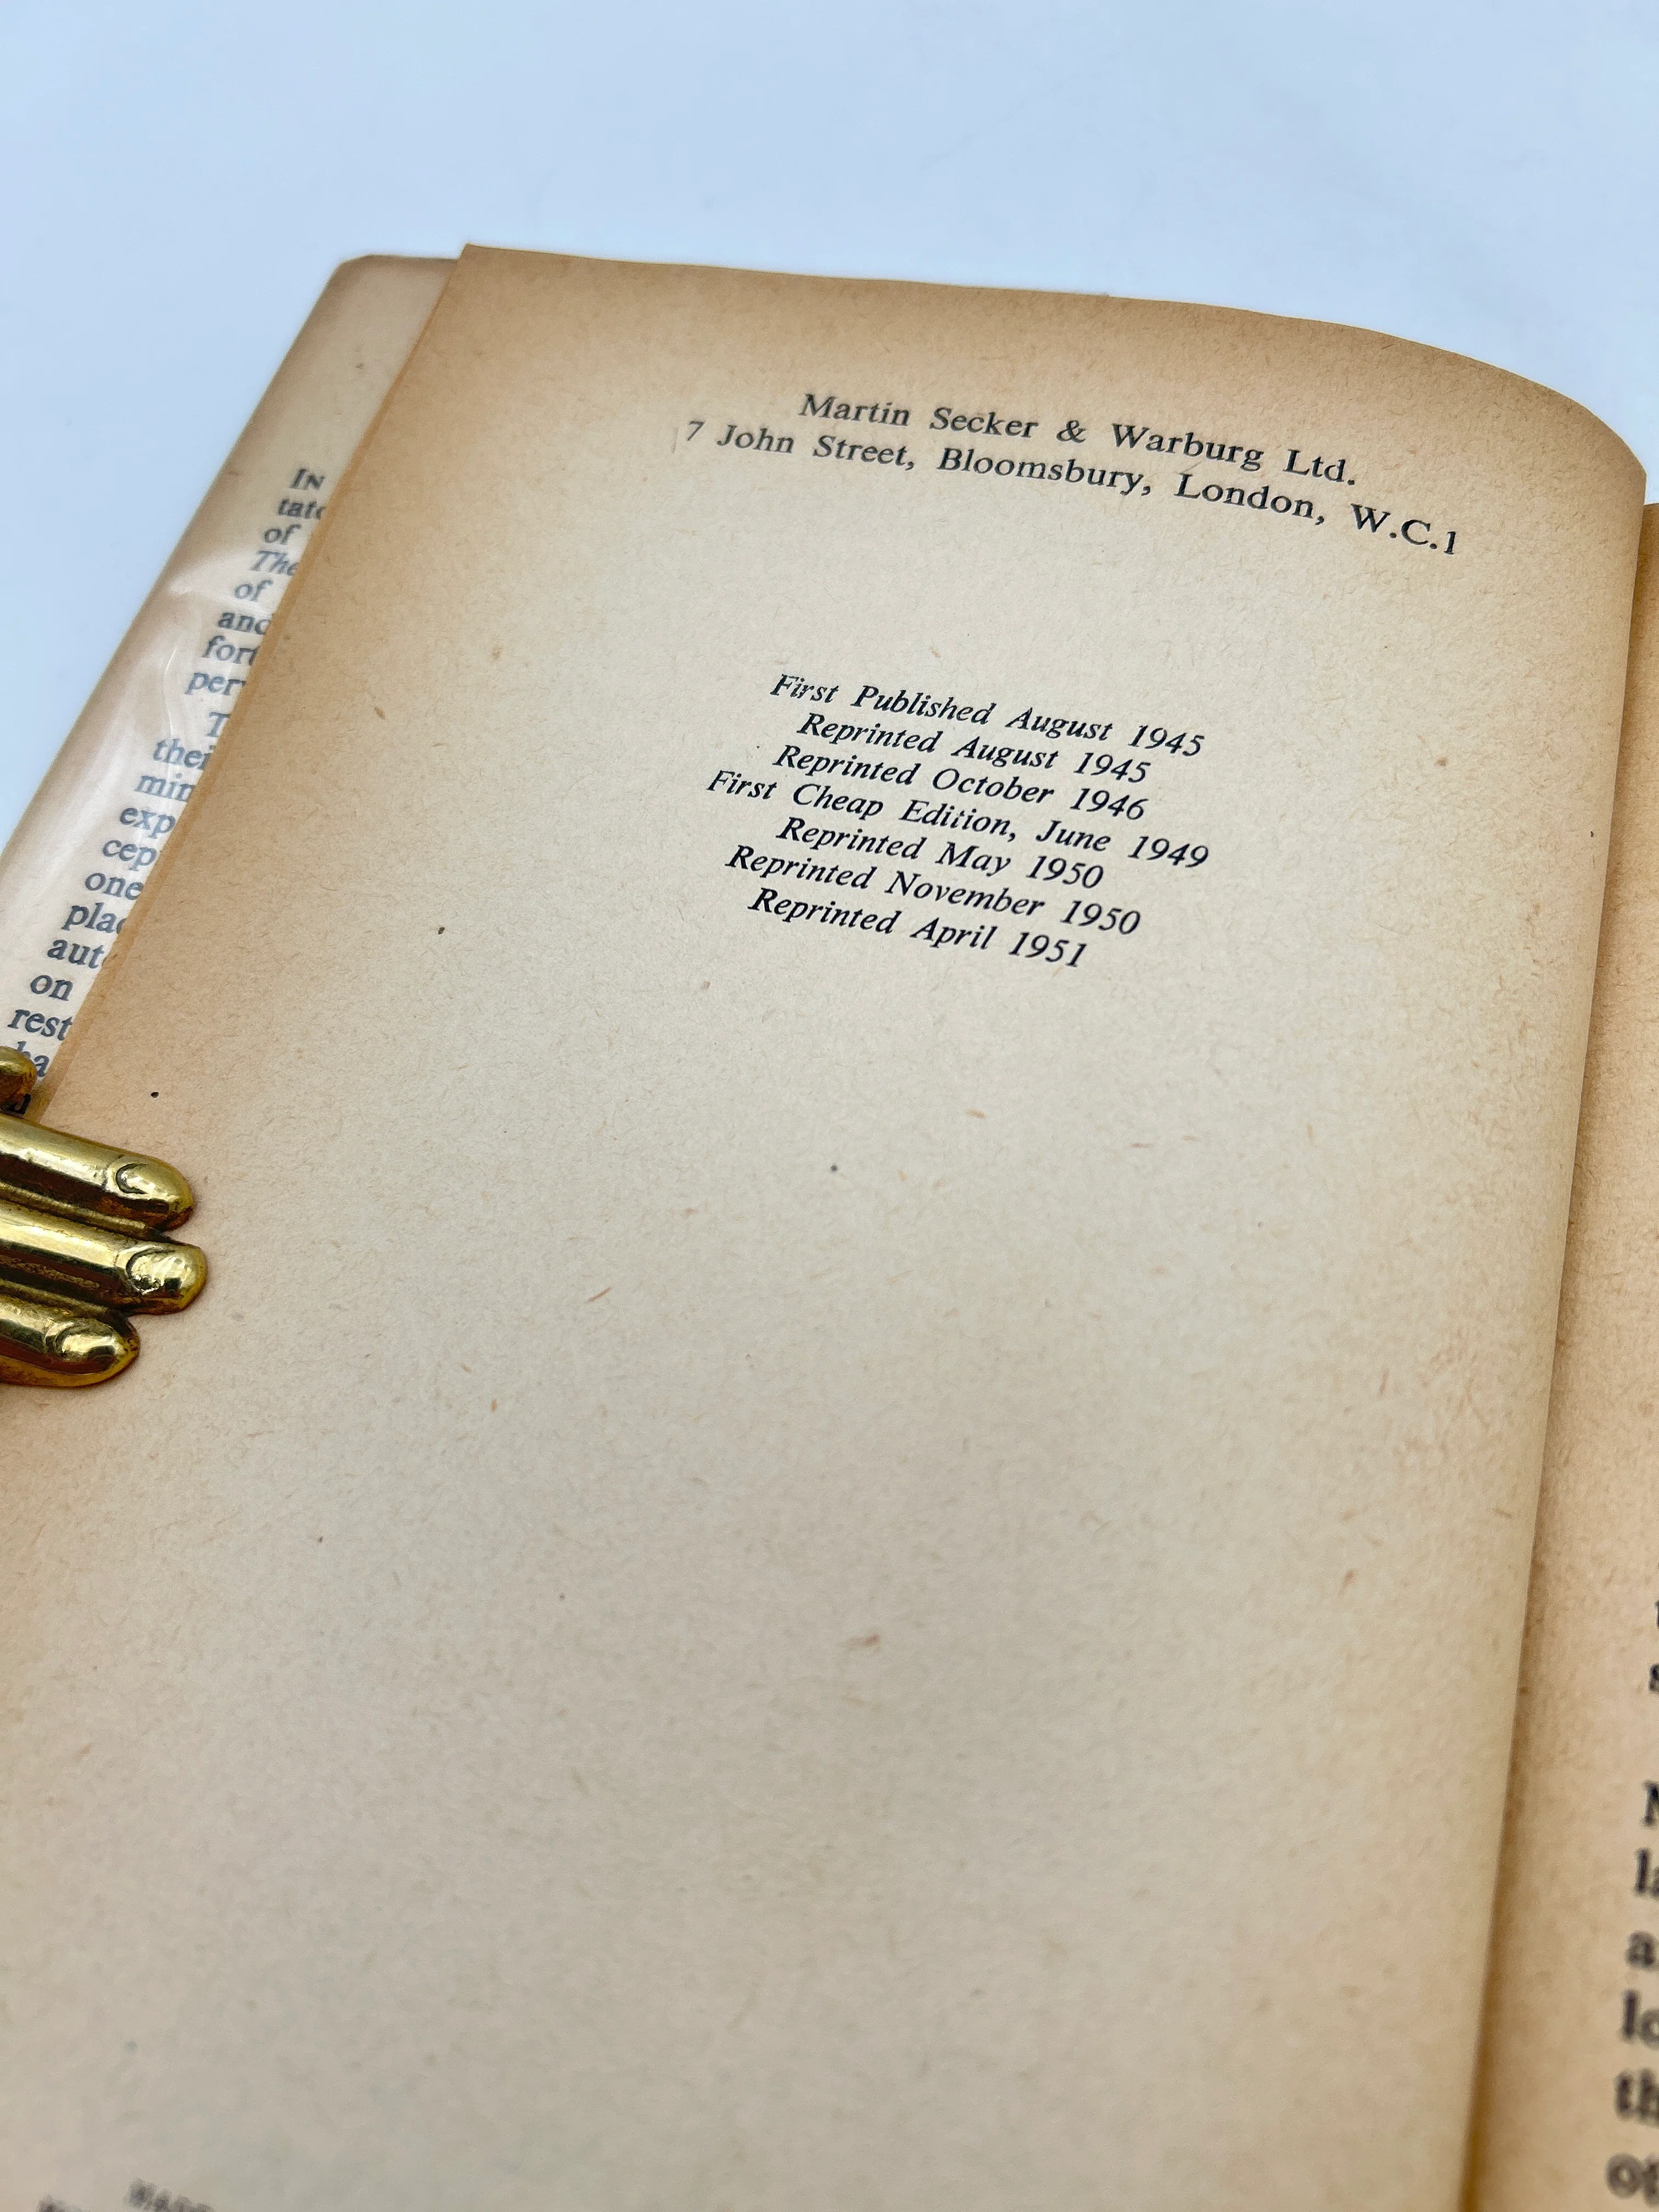 Martin Secker & Warburg Ltd.
7 John Street, Bloomsbury, London, W.C.1
First Published August 1945
Reprinted August 1945
Reprinted October 1946
First Cheap Edition, June 1949
Reprinted May 1950
Reprinted November 1950
Reprinted April 1951
In
of
The
of
on